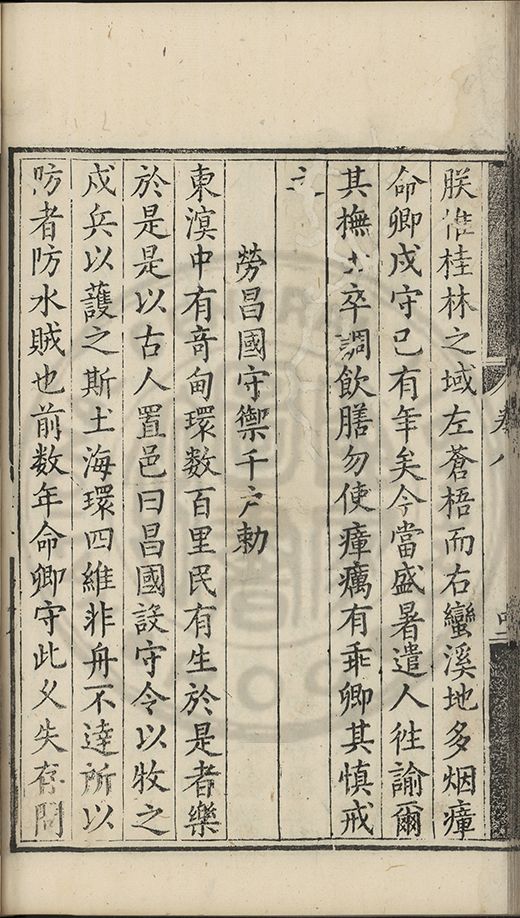 朕惟桂林之域左蒼梧而右蠻溪地多烟瘴
命卿戍守已有年矣今當盛暑遣人徃諭爾
其撫士卒調飲膳勿使瘴癘有乖卿其慎戒
之
勞昌國守禦千户勅
東溟中有竒甸環数百里民有生於是者樂
於是是以古人置邑曰昌國設守令以牧之
戍兵以䕶之斯土海環四維非舟不達所以
防者防水賊也前数年命卿守此乆失存問
卷八